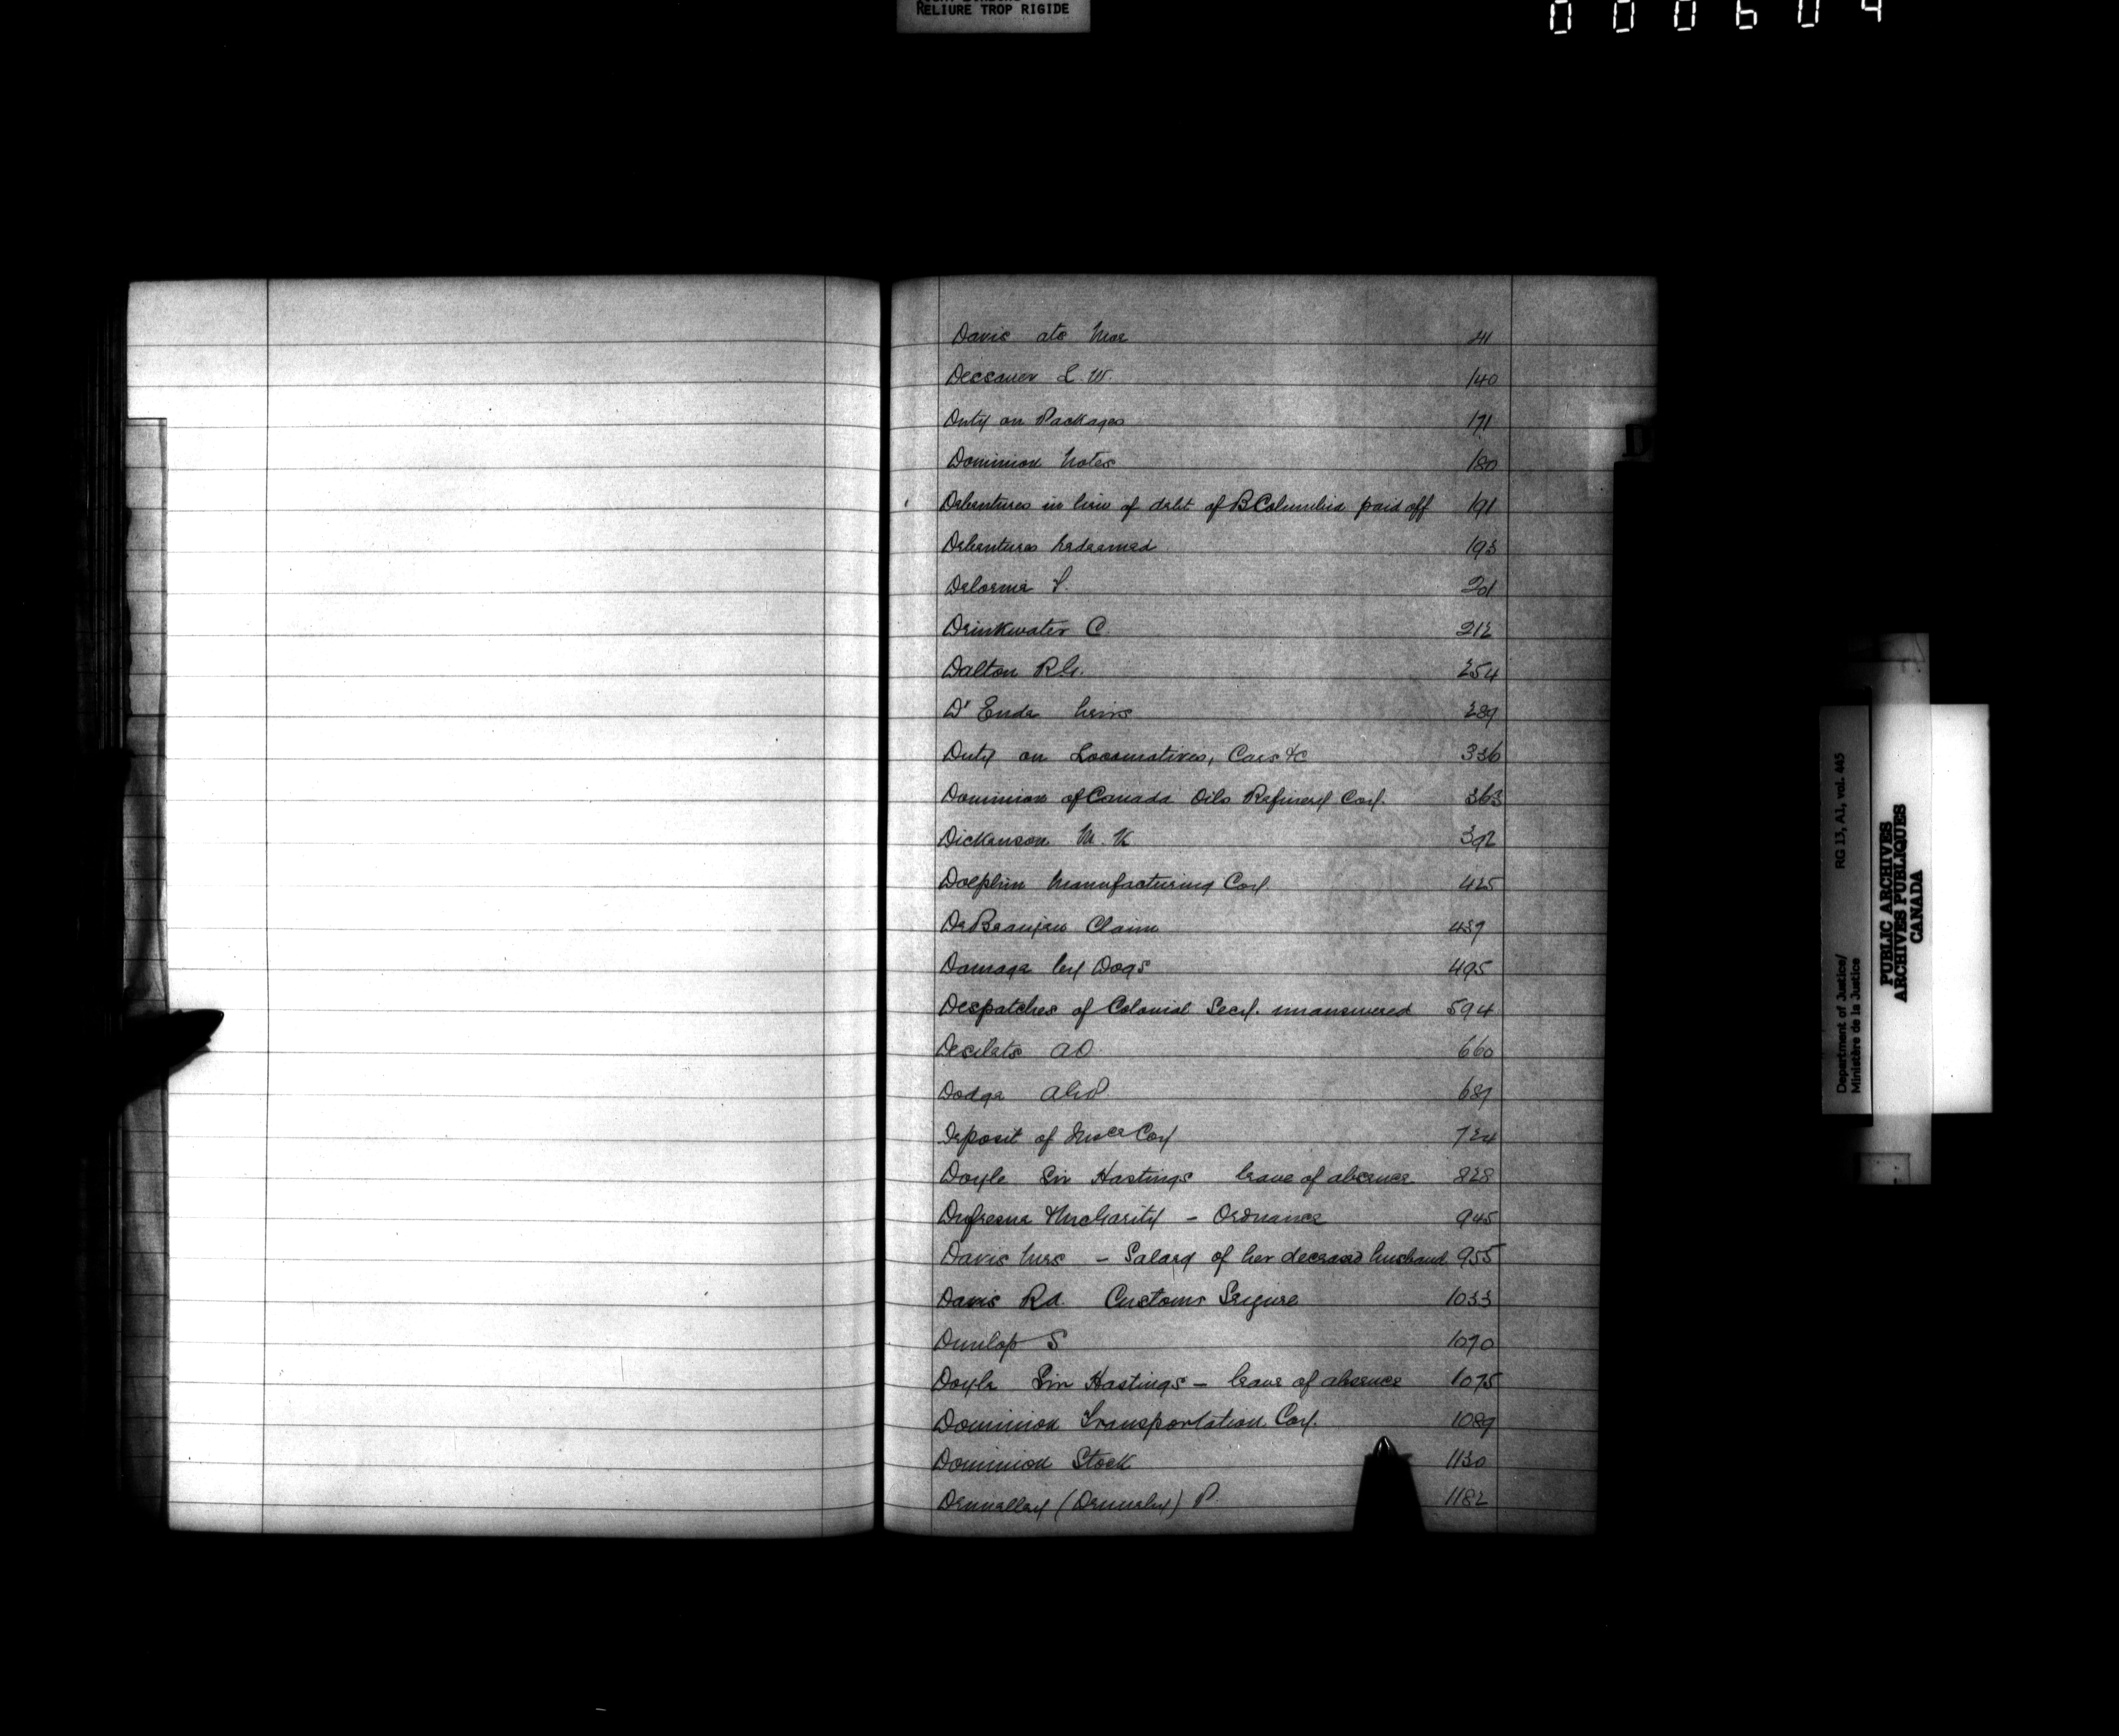 RELIURE TROP RIGIDE
000604
Davis ats Moe 41
Dessauer L. W. 140
Duty on Packages 171
Dominion Notes 180
Debentures in lieu of debt of B Columbia paid off 191
Debentures Redeemed 193
Delorme S. 201
Drinkwater C. 212
Dalton R.G. 254
D' Ende heirs 289
Duty on Locomotives, Cars &c 336
Dominion of Canada Oils Refinery Coy. 363
Dickenson M. K 392
Dolphin Manufacturing Coy. 425
De Beaujeu Claim 437
Damage by Dogs 495
Despatches of Colonial Secy. unanswered 594
Desilets A O. 660
Dodge 687
Deposit of Insce Coy 724
Doyle Sir Hastings leave of absence 828
Dufresne & McGarity - Ordnance 945
Davis Mrs - Salary of her deceased husband 955
Davis Rd. Customs Seizure 1033
Dunlop S 1070
Doyle Sir Hastings - leave of absence 1075
Dominion Transportation Coy. 1089
Dominion Stock 1130
P. 1182
D
Department of Justice/ RG 13, A1, vol. 445
Ministère de la Justice
PUBLIC ARCHIVES
ARCHIVES PUBLIQUES
CANADA